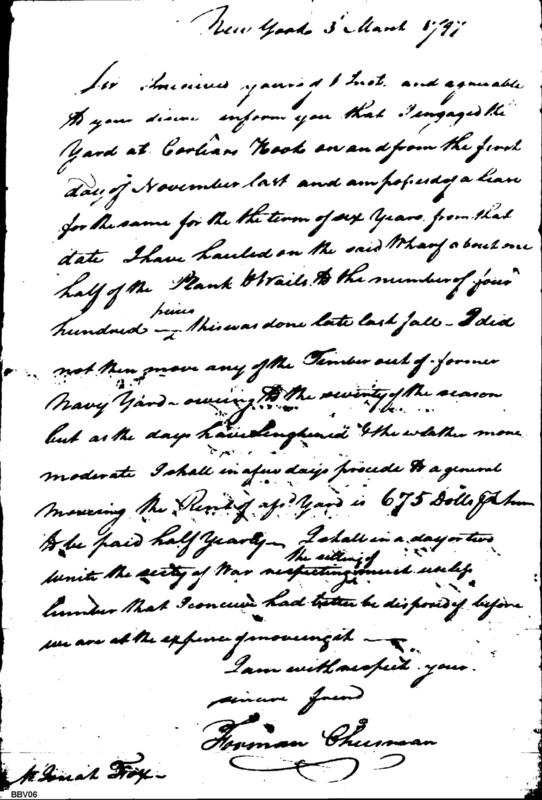 New York 3 March 1797
Sir I received yours of 1 Inst. and agreeable
to your desire inform you that I engaged the
Yard at Corlears Hook on and from the first
day of November last and am possesed of a lease
for the same for the the term of six Years from that
date I have hauled on the said Wharf about one
half of the Plank & Wails to the number of four
hundred pieces this was done late last fall - I did
not then move any of the Timber out of former
Navy Yard - owing to the severity of the season
but as the days have lenghened & the wether more
moderate I shall in a few days procede to a general
mooveing the Rent of afsd Yard is 675 Dolls pr Ann
to be paid half Yearly - I shall in a day or two
write the secty of War respecting the selling of much useless
lumber that I conceive had better be disposed of before
we are at the expence of mooveing it -
I am with respect your
sincere friend
Forman Cheesman
Mr Josiah Fox -
BBV06